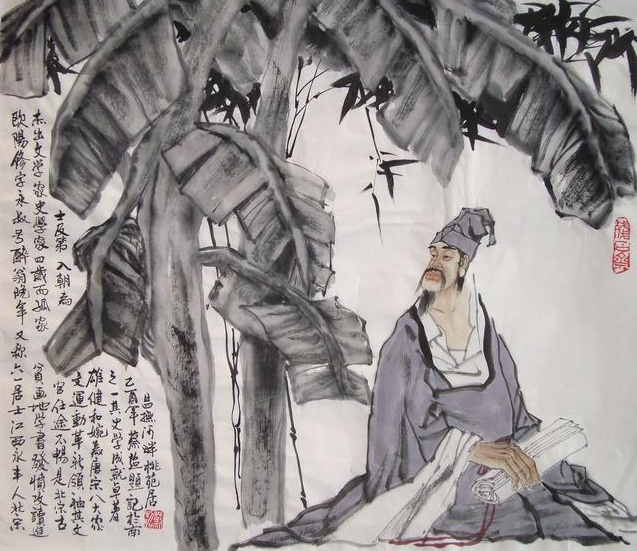 欧陽修字永叔号醉翁晚年又称六一居士江西永丰人北宋
杰出文学家史学家四歲而孤家貧画地学書發愤攻讀進
士及第入朝為
官仕途不暢是北宋古
文運動革新領袖其文
雄健和婉為唐宋八大家
之一其史学成就卓著
乙酉年蔡照記於南
昌撫河畔桃苑居